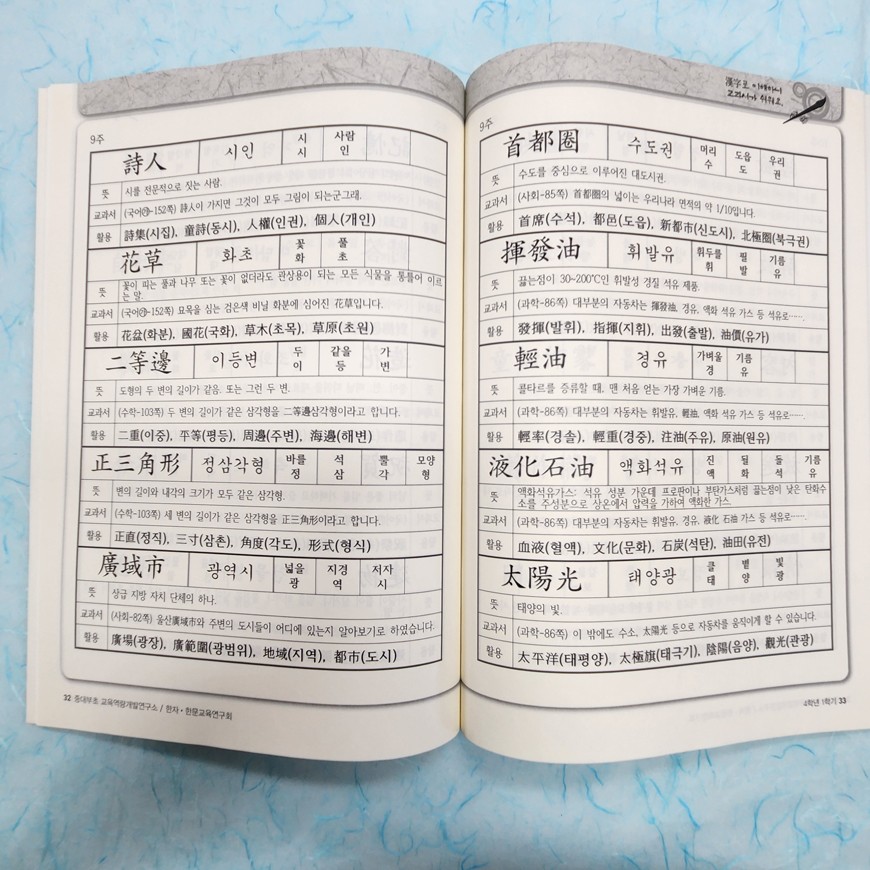 9주
詩人 시인 시 시 사람 인
뜻 시를 전문적으로 짓는 사람.
교과서 (국어㉮-152쪽) 詩人이 가지면 그것이 모두 그림이 되는군그래.
활용 詩集(시집), 童詩(동시), 人權(인권), 個人(개인)
花草 화초 꽃 화 풀 초
뜻 꽃이 피는 풀과 나무 또는 꽃이 없더라도 관상용이 되는 모든 식물을 통틀어 이르
는 말.
교과서 (국어㉮-152쪽) 묘목을 심는 검은색 비닐 화분에 심어진 花草입니다.
활용 花盆(화분), 國花(국화), 草木(초목), 草原(초원)
二等邊 이등변 두 이 같을 등 가 변
뜻 도형의 두 변의 길이가 같음. 또는 그런 두 변.
교과서 (수학-103쪽) 두 변의 길이가 같은 삼각형을 二等邊삼각형이라고 합니다.
활용 二重(이중), 平等(평등), 周邊(주변), 海邊(해변)
正三角形 정삼각형 바를 정 석 삼 뿔 각 모양 형
뜻 변의 길이와 내각의 크기가 모두 같은 삼각형.
교과서 (수학-103쪽) 세 변의 길이가 같은 삼각형을 正三角形이라고 합니다.
활용 正直(정직), 三寸(삼촌), 角度(각도), 形式(형식)
廣域市 광역시 넓을 광 지경 역 저자 시
뜻 상급 지방 자치 단체의 하나.
교과서 (사회-82쪽) 울산廣域市와 주변의 도시들이 어디에 있는지 알아보기로 하였습니다.
활용 廣場(광장), 廣範圍(광범위), 地域(지역), 都市(도시)
32 중대부초 교육역량개발연구소 / 한자·한문교육연구회
漢字로 이해하니
교과서가 쉬워요.
9주
首都圈 수도권 머리 수 도읍 도 우리 권
뜻 수도를 중심으로 이루어진 대도시권.
교과서 (사회-85쪽) 首都圈의 넓이는 우리나라 면적의 약 1/10입니다.
활용 首席(수석), 都邑(도읍), 新都市(신도시), 北極圈(북극권)
揮發油 휘발유 휘두를 휘 필 발 기름 유
뜻 끓는점이 30~200℃인 휘발성 경질 석유 제품.
교과서 (과학-86쪽) 대부분의 자동차는 揮發油, 경유, 액화 석유 가스 등 석유로…….
활용 發揮(발휘), 指揮(지휘), 出發(출발), 油價(유가)
輕油 경유 가벼울 경 기름 유
뜻 콜타르를 증류할 때, 맨 처음 얻는 가장 가벼운 기름.
교과서 (과학-86쪽) 대부분의 자동차는 휘발유, 輕油, 액화 석유 가스 등 석유로…….
활용 輕率(경솔), 輕重(경중), 注油(주유), 原油(원유)
液化石油 액화석유 진 액 될 화 돌 석 기름 유
뜻 액화석유가스: 석유 성분 가운데 프로판이나 부탄가스처럼 끓는점이 낮은 탄화수
소를 주성분으로 상온에서 압력을 가하여 액화한 가스.
교과서 (과학-86쪽) 대부분의 자동차는 휘발유, 경유, 液化 石油 가스 등 석유로…….
활용 血液(혈액), 文化(문화), 石炭(석탄), 油田(유전)
太陽光 태양광 클 태 볕 양 빛 광
뜻 태양의 빛.
교과서 (과학-86쪽) 이 밖에도 수소, 太陽光 등으로 자동차를 움직이게 할 수 있습니다.
활용 太平洋(태평양), 太極旗(태극기), 陰陽(음양), 觀光(관광)
4학년 1학기 33